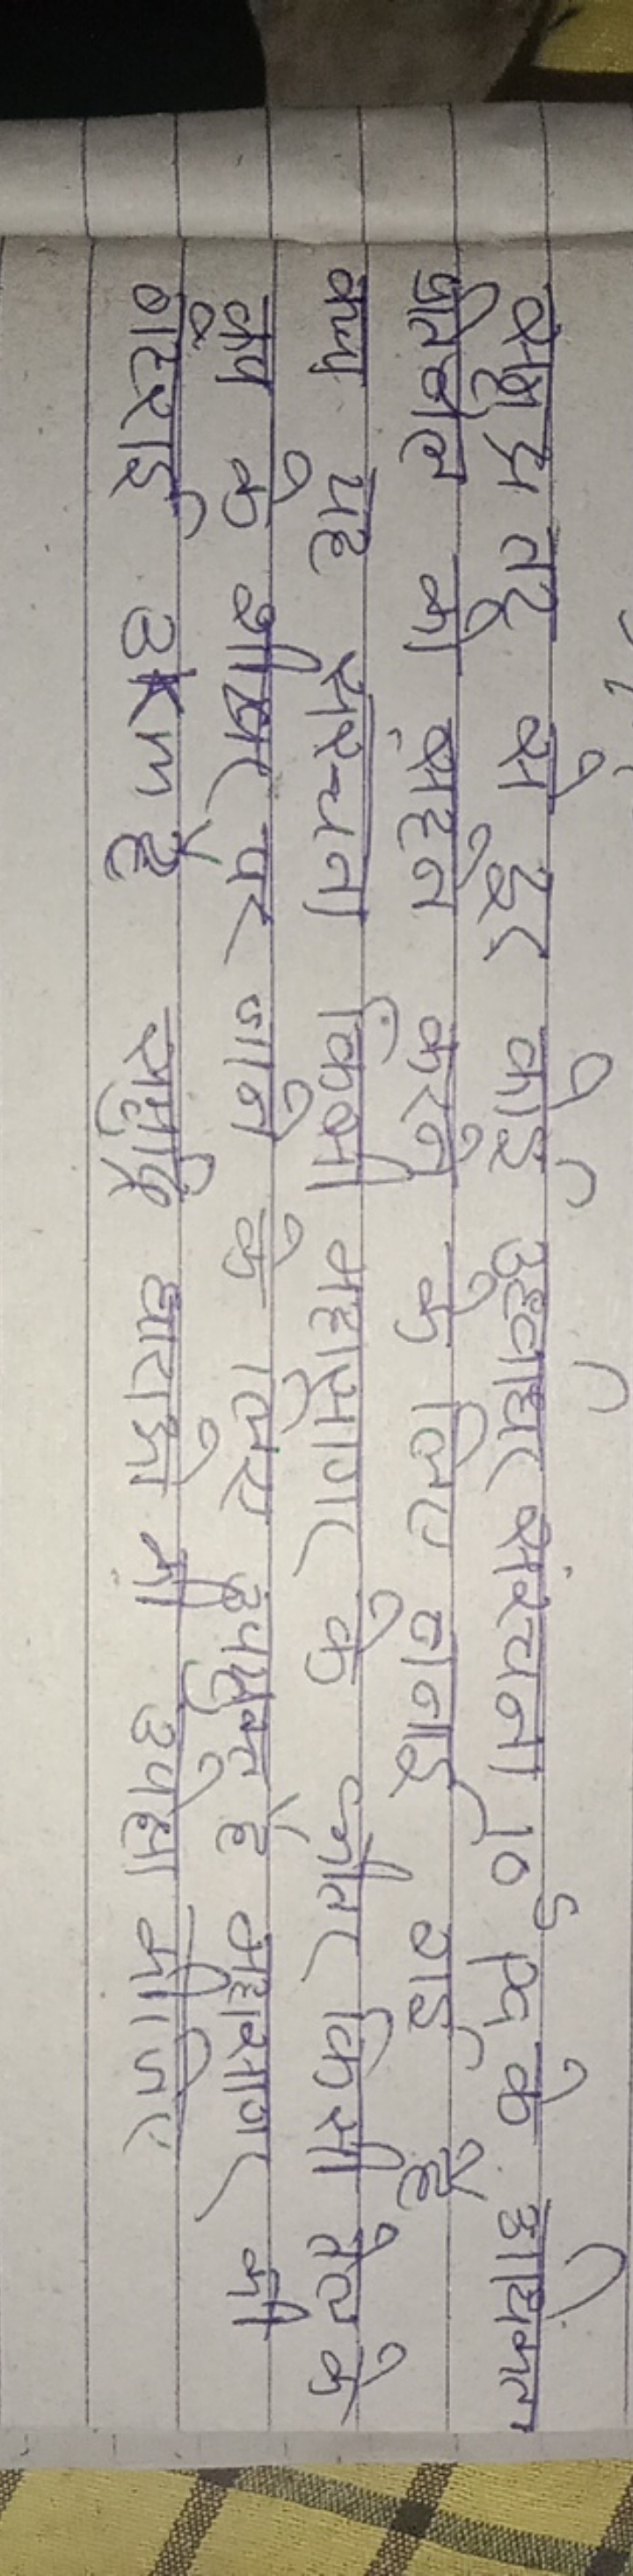 समुद्र तट से दूर कोई उर्ध्वाधर संरचना 10⁵ pa के अधिकतम
प्रतिबल को सहन करने के लिए बनाई गई है
क्या यह संरचना किसी महासागर के भीतर किसी तेल के
कूप के शीखर पर जाने के लिए उपयुक्त है महासागर की
गहराई 3km है समुद्रि धाराओ की उपेक्षा कीजिए